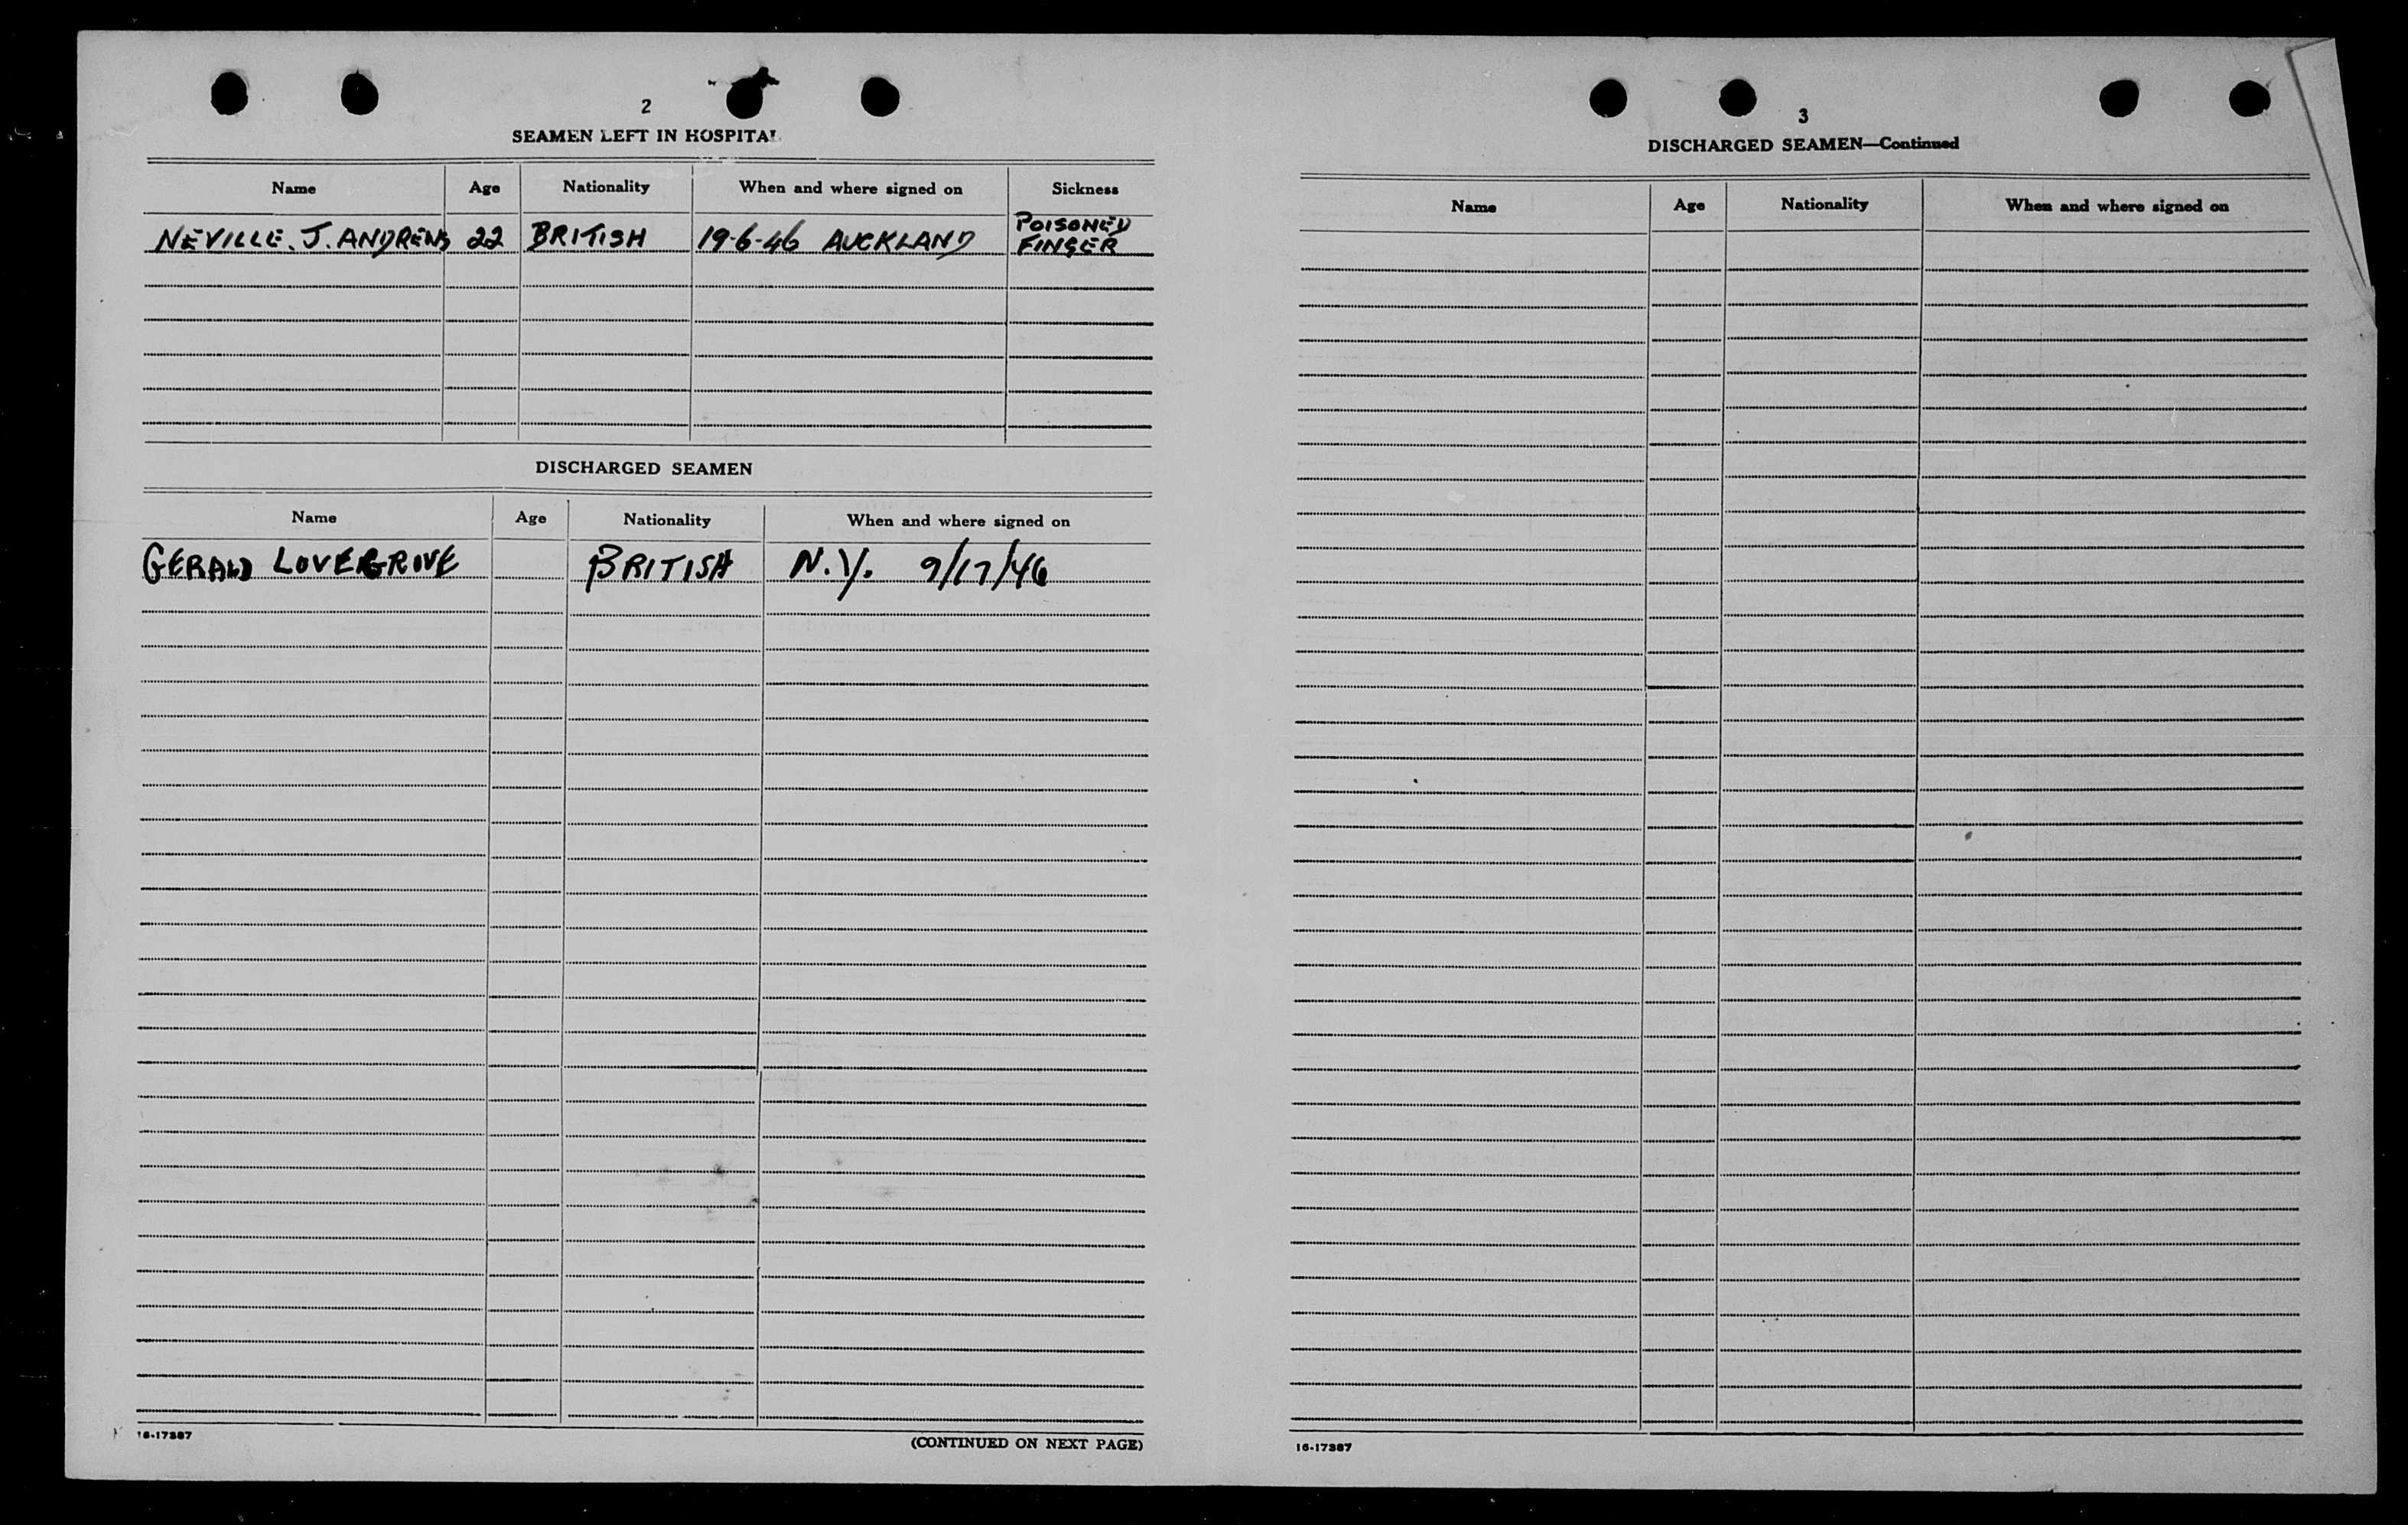 2
SEAMEN LEFT IN HOSPITAL
Name Age Nationality When and where signed on Sickness
NEVILLE. J. ANDREWS 22 BRITISH 19-6-46 AUCKLAND POISONED
FINGER
DISCHARGED SEAMEN
Name Age Nationality When and where signed on
GERALD LOVEGROVE BRITISH N.Y. 9/17/46
16-17387
(CONTINUED ON NEXT PAGE)
3
DISCHARGED SEAMEN—Continued
Name Age Nationality When and where signed on
16-17387